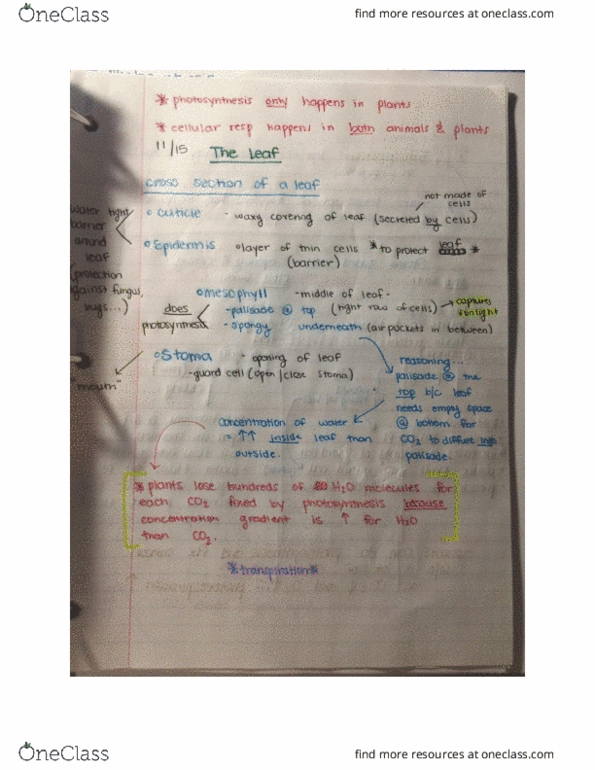 OneClass
find more resources at oneclass.com
* photosynthesis only happens in plants
* cellular resp happens in both animals & plants
11/15 The leaf
cross section of a leaf
not made of cells
water tight barrier around leaf (protection against fungus, bugs...)
◦ cuticle - waxy covering of leaf (secreted by cells)
◦ Epidermis ◦ layer of thin cells * to protect leaf *
(barrier)
does photosynthesis
◦ mesophyll - middle of leaf -
- palisade @ top (tight row of cells) → captures sunlight
- spongy underneath (air pockets in between)
"mouth"
◦ Stoma - opening of leaf
- guard cell (open/close stoma)
reasoning...
palisade @ the
top b/c leaf
needs empty space
@ bottom for
CO2 to diffuse into
palisade.
concentration of water
= ↑↑ inside leaf than
outside.
* plants lose hundreds of H2O molecules for
each CO2 fixed by photosynthesis because
concentration gradient is ↑ for H2O
than CO2.
*transpiration*
OneClass
find more resources at oneclass.com